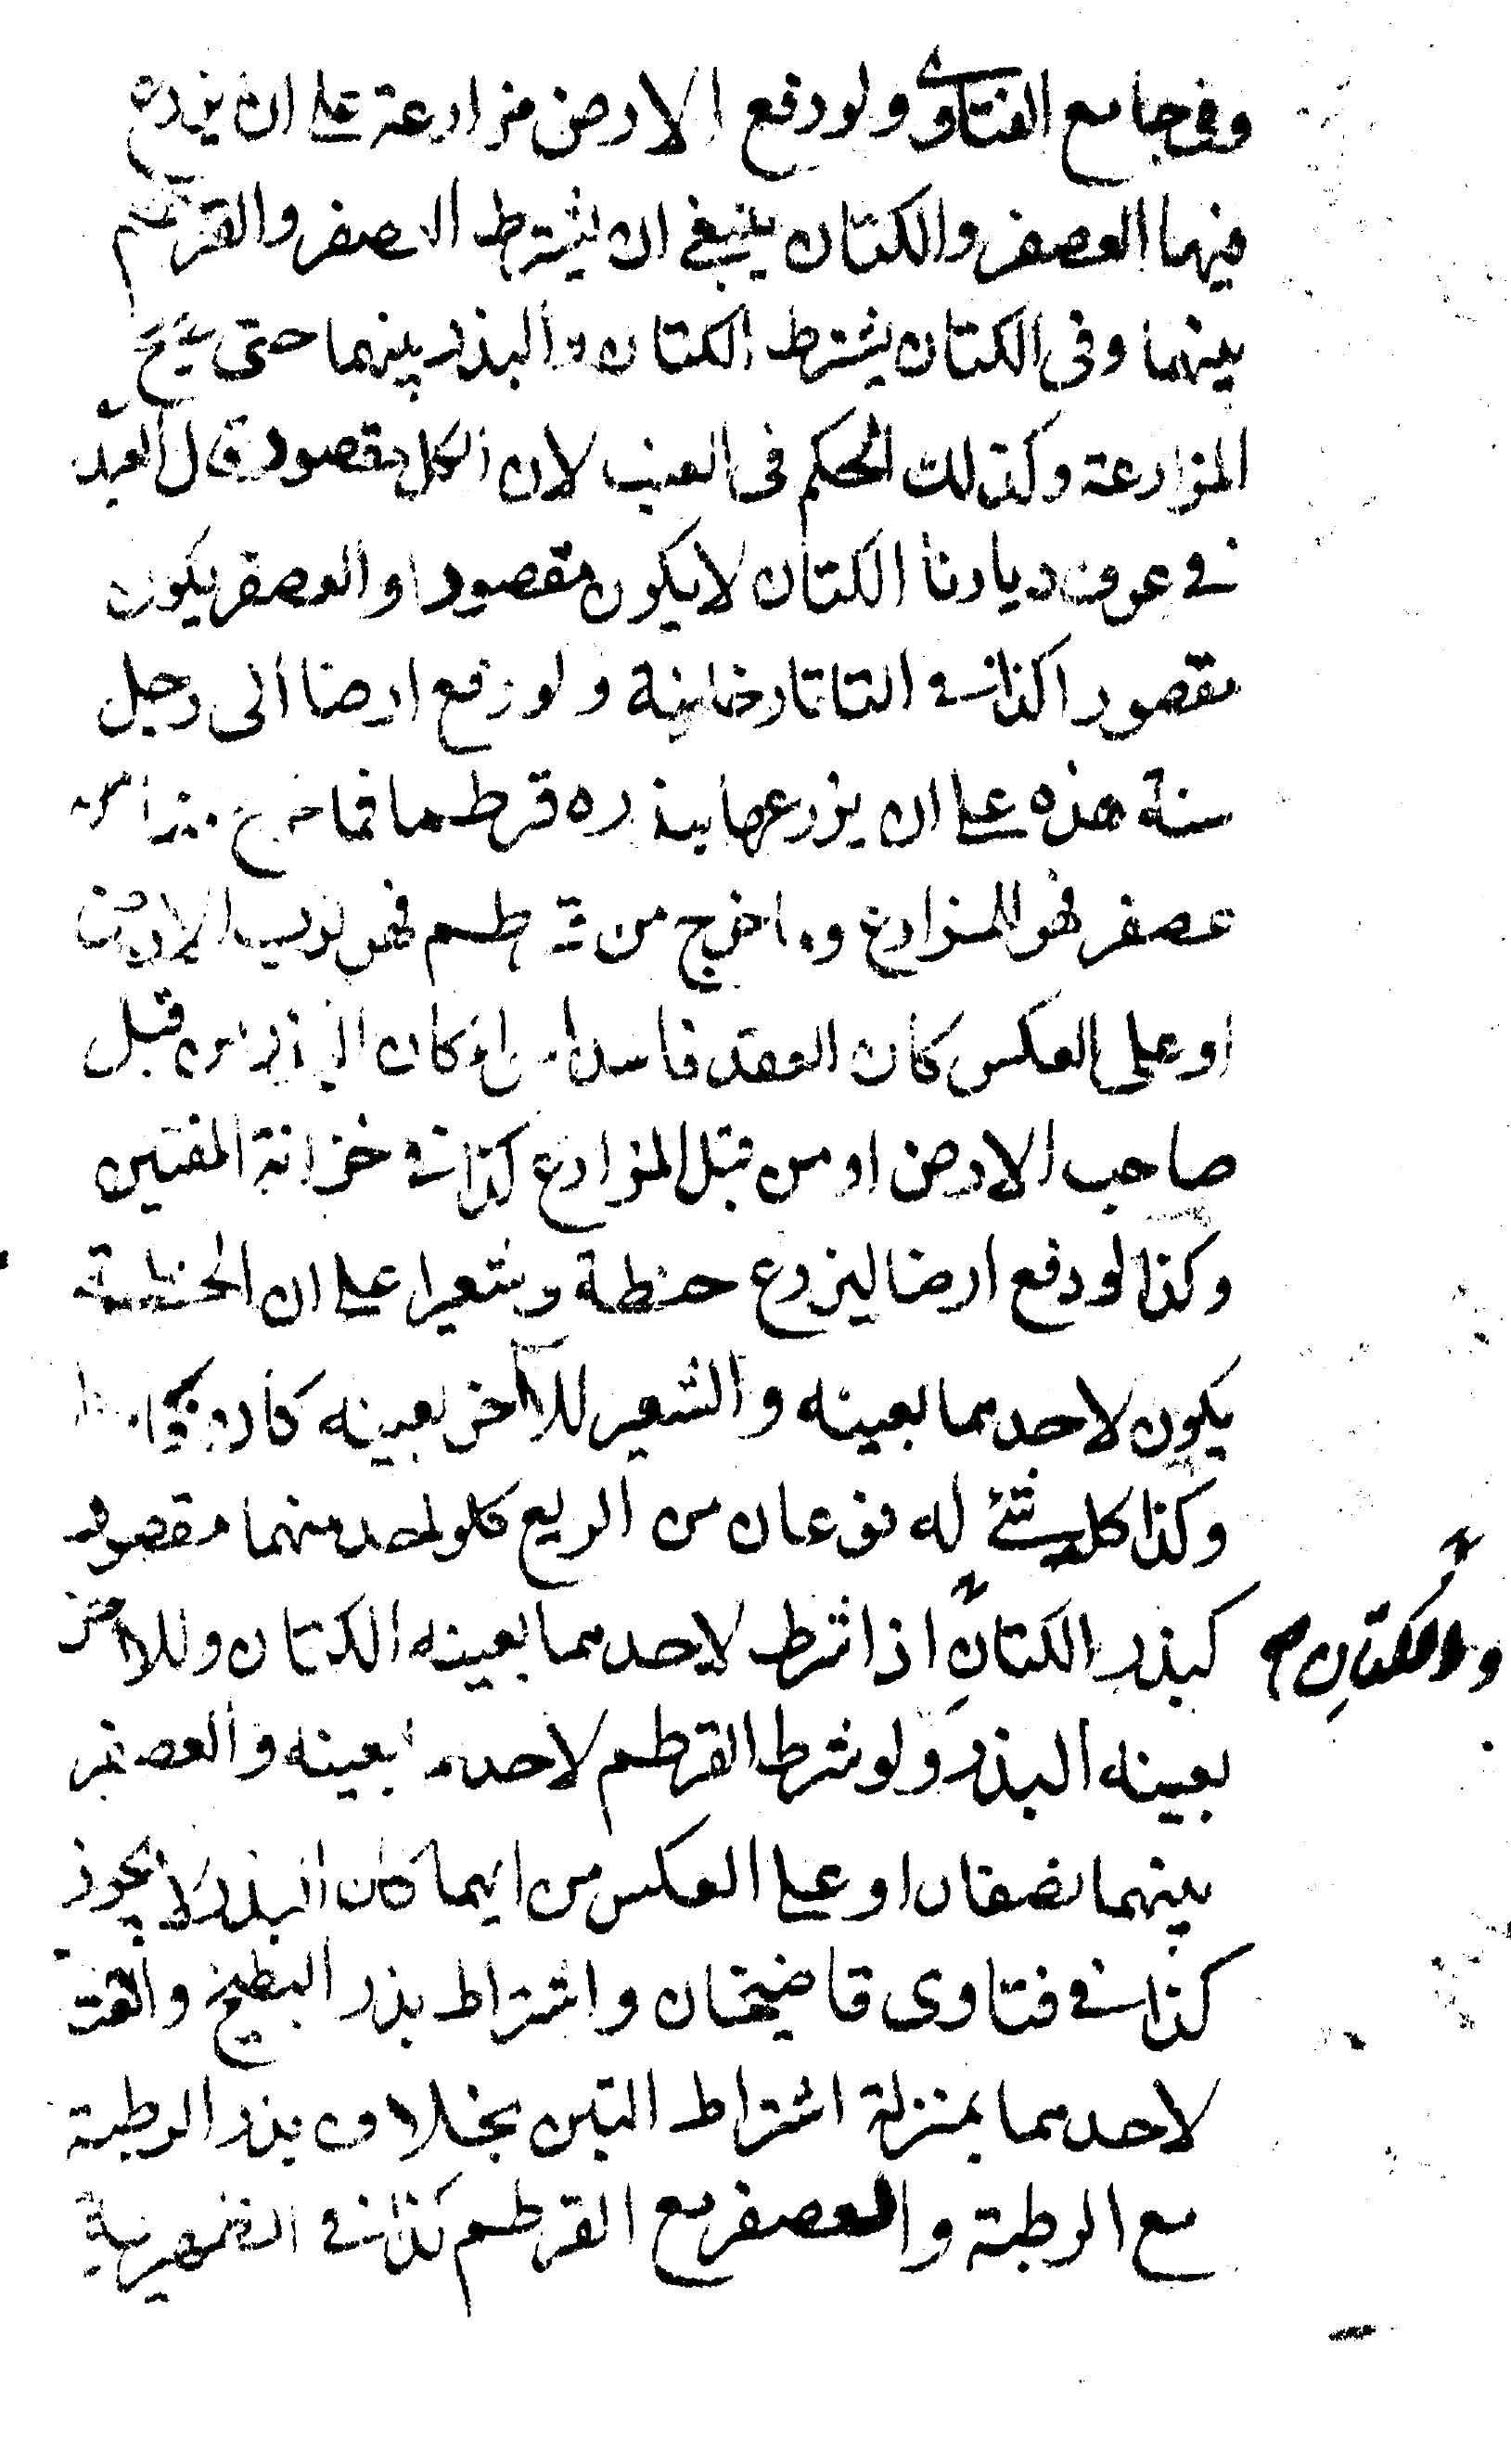 وفى جامع الفتاوى ولو دفع الارض مزارعة على ان يزرع
فيها العصفر والكتان ينبغى ان يشترط العصفر والقرطم
بينهما وفى الكتان يشترط الكتان والبذر بينهما حتى يصح
المزارعة وكذلك الحكم فى العنب لان الكل مقصود قال العبد
فى عرف ديارنا الكتان لا يكون مقصودا والعصفر يكون
مقصودا كذا فى التاتارخانية ولو دفع ارضا الى رجل
سنة هذه على ان يزرعها ببذره قرطما فما خرج منها من
عصفر فهو للمزارع وما خرج من قرطم فهو لرب الارض
او على العكس كان العقد فاسدا سواء كان البذر من قبل
صاحب الارض او من قبل المزارع كذا فى خزانة المفتين
وكذا لو دفع ارضا ليزرع حنطة وشعيرا على ان الحنطة
يكون لاحدهما بعينه والشعير للآخر بعينه كان
وكذا كل شئ له نوعان من الريع كلو احد منهما مقصود
كبذر الكتان اذا شرط لاحدهما بعينه الكتان وللآخر
والكتان
بعينه البذر ولو شرط القرطم لاحدهما بعينه والعصفر
بينهما نصفان او على العكس من ايهما كان البذر لا يجوز
كذا فى فتاوى قاضيخان واشتراط بذر البطيخ والقثاء
لاحدهما بمنزلة اشتراط التبن بخلاف بذر الرطبة
مع الرطبة والعصفر مع القرطم كذا فى الظهيرية